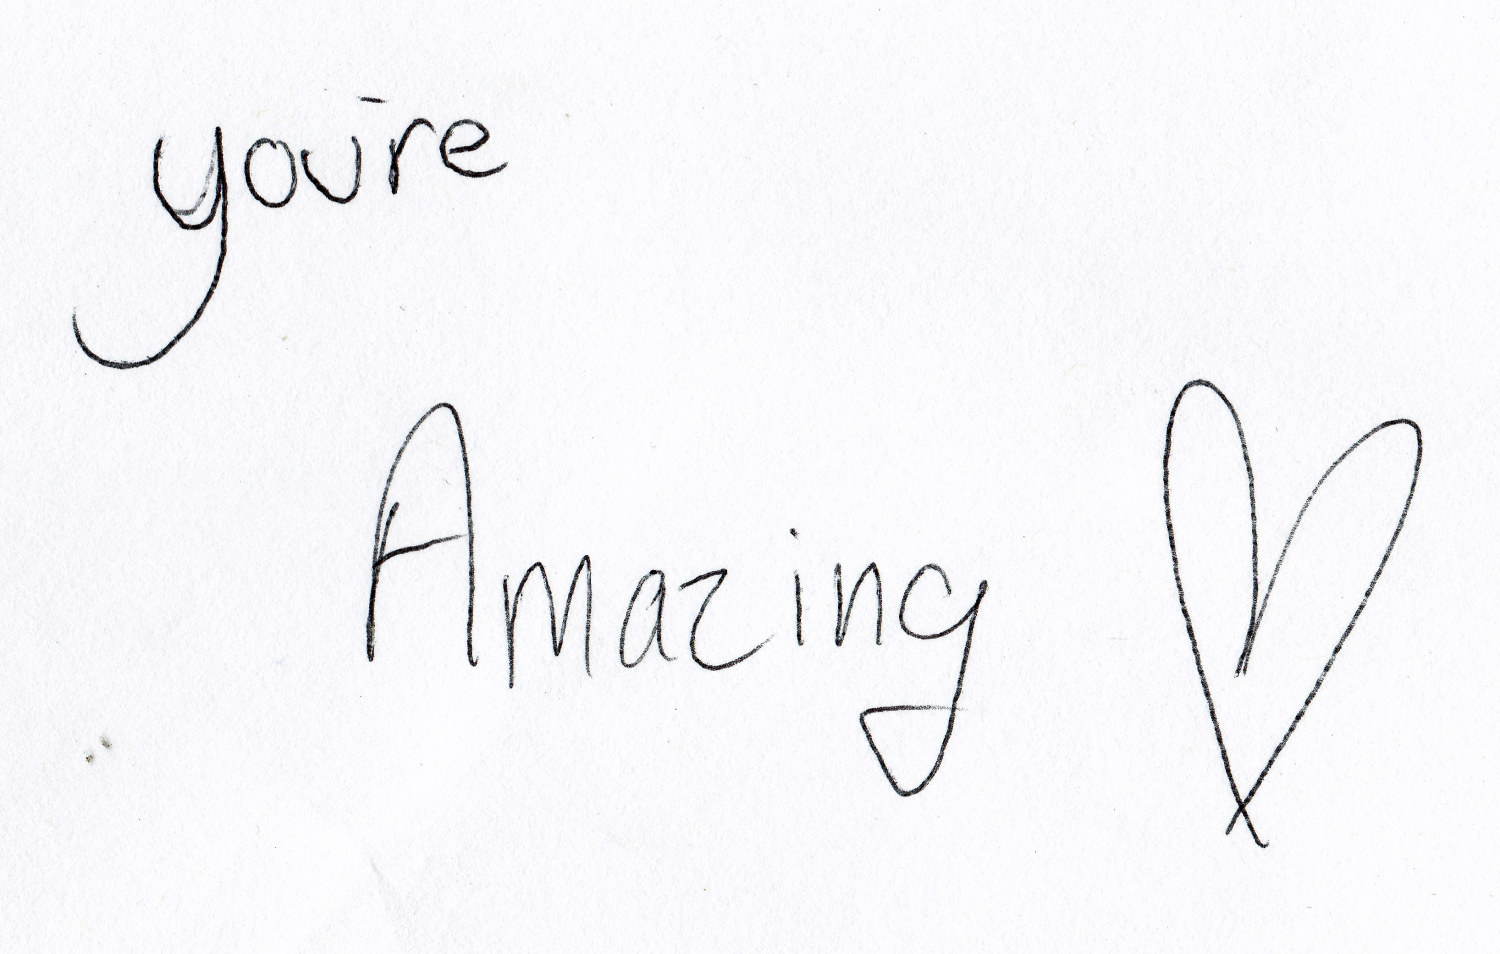 you're
Amazing ♡